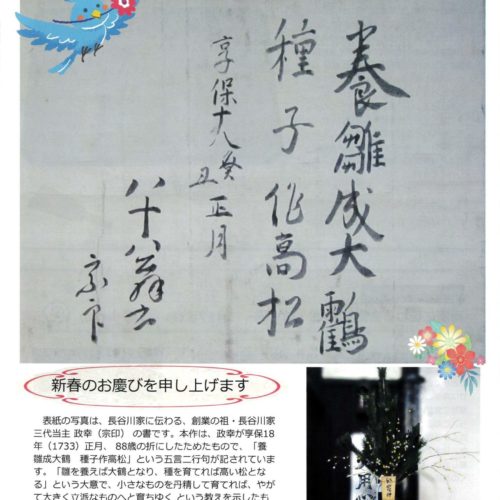 養雛成大鶴
種子作高松
享保十八癸
丑正月
八十八翁書
宗印
新春のお慶びを申し上げます
表紙の写真は、長谷川家に伝わる、創業の祖・長谷川家
三代当主 政幸（宗印）の書です。本作は、政幸が享保18
年（1733）正月、88歳の折にしたためたもので、「養
雛成大鶴 種子作高松」という五言二行句が記されていま
す。「雛を養えば大鶴となり、種を育てれば高い松とな
る」という大意で、小さなものを丹精して育てれば、やが
て大きく立派なものへと育ちゆく という教えを示したも